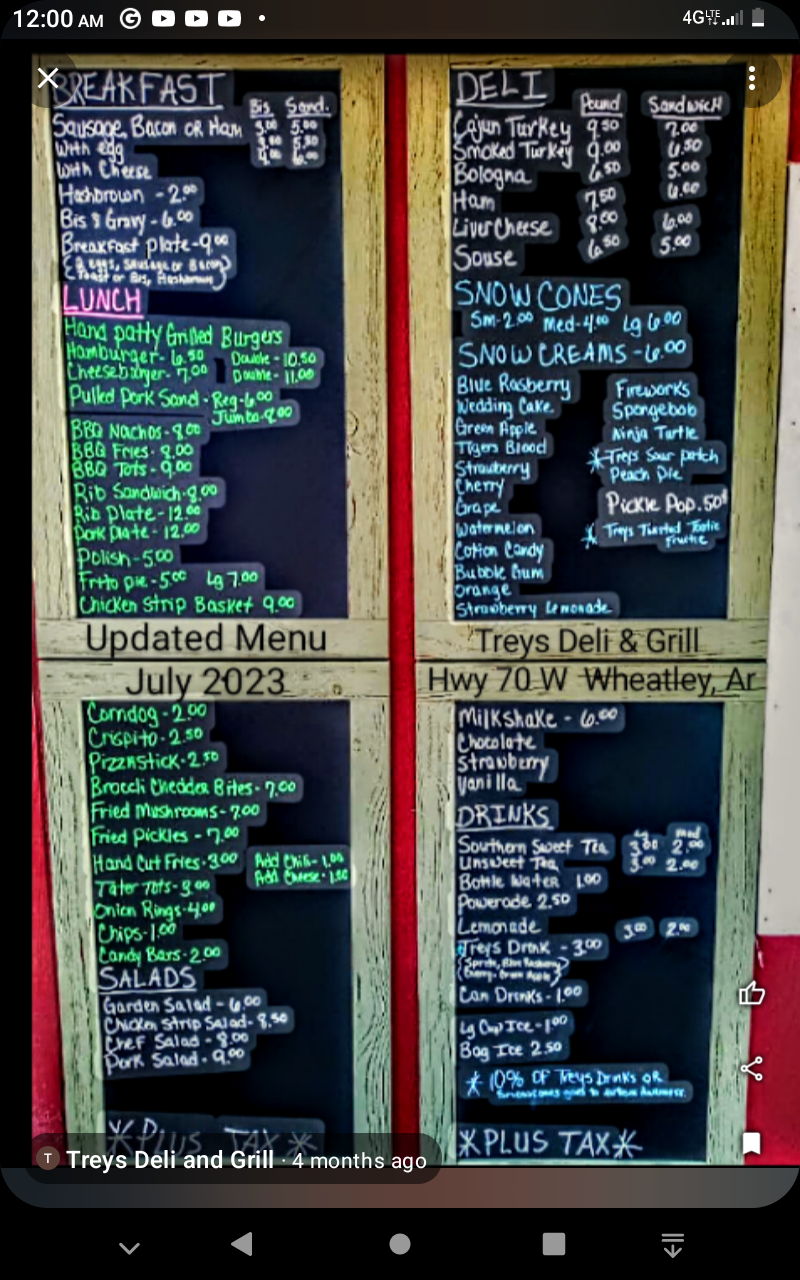 12:00 AM
4G LTE
BREAKFAST
Bis. Sand.
Sausage, Bacon OR Ham 3.00 5.00
with egg
with Cheese
Hashbrown - 2.00
Bis & Gravy - 6.00
Breakfast plate - 9.00
(2 eggs, Sausage or Bacon
Toast or Bis, Hashbrown)
LUNCH
Hand patty Grilled Burgers
Hamburger - 6.50 Double - 10.50
Cheeseburger - 7.00 Double - 11.00
Pulled Pork Sand - Reg - 6.00
Jumbo - 8.00
BBQ Nachos - 8.00
BBQ Fries - 8.00
BBQ Tots - 9.00
Rib Sandwich - 8.00
Rib Plate - 12.00
Pork Plate - 12.00
Polish - 5.00
Frito pie - 5.00 Lg 7.00
Chicken Strip Basket 9.00
DELI
Pound Sandwich
Cajun Turkey 9.50 7.00
Smoked Turkey 9.00 6.50
Bologna 6.50 5.00
Ham 7.50 6.00
Liver Cheese 8.00 6.00
Souse 6.50 5.00
SNOW CONES
Sm - 2.00 Med - 4.00 Lg 6.00
SNOW CREAMS - 6.00
Blue Rasberry
Wedding Cake
Green Apple
Tigers Blood
Strawberry
Cherry
Grape
Watermelon
Cotton Candy
Bubble Gum
Orange
Strawberry Lemonade
Fireworks
Spongebob
Ninja Turtle
*Treys Sour patch
Peach Pie
Pickle Pop .50¢
* Treys Twisted Tootie
Fruitie
Updated Menu
July 2023
Treys Deli & Grill
Hwy 70 W Wheatley, Ar
Corndog - 2.00
Crispito - 2.50
Pizzastick - 2.50
Broccli Chedder Bites - 7.00
Fried Mushrooms - 7.00
Fried Pickles - 7.00
Hand Cut Fries - 3.00 Add Chili - 1.00
Add Cheese - 1.50
Tater Tots - 3.00
Onion Rings - 4.00
Chips - 1.00
Candy Bars - 2.00
SALADS
Garden Salad - 6.00
Chicken Strip Salad - 8.50
Chef Salad - 8.00
Pork Salad - 9.00
*PLUS TAX*
Milkshake - 6.00
Chocolate
Strawberry
Vanilla
DRINKS
Lg Med
Southern Sweet Tea 3.00 2.00
Unsweet Tea 3.00 2.00
Bottle Water 1.00
Powerade 2.50
Lemonade 3.00 2.00
Treys Drink - 3.00
(Sprite, Blue Rasberry
Cherry, Green Apple)
Can Drinks - 1.00
Lg Cup Ice - 1.00
Bag Ice 2.50
* 10% OF Treys Drinks OR
*PLUS TAX*
T Treys Deli and Grill · 4 months ago